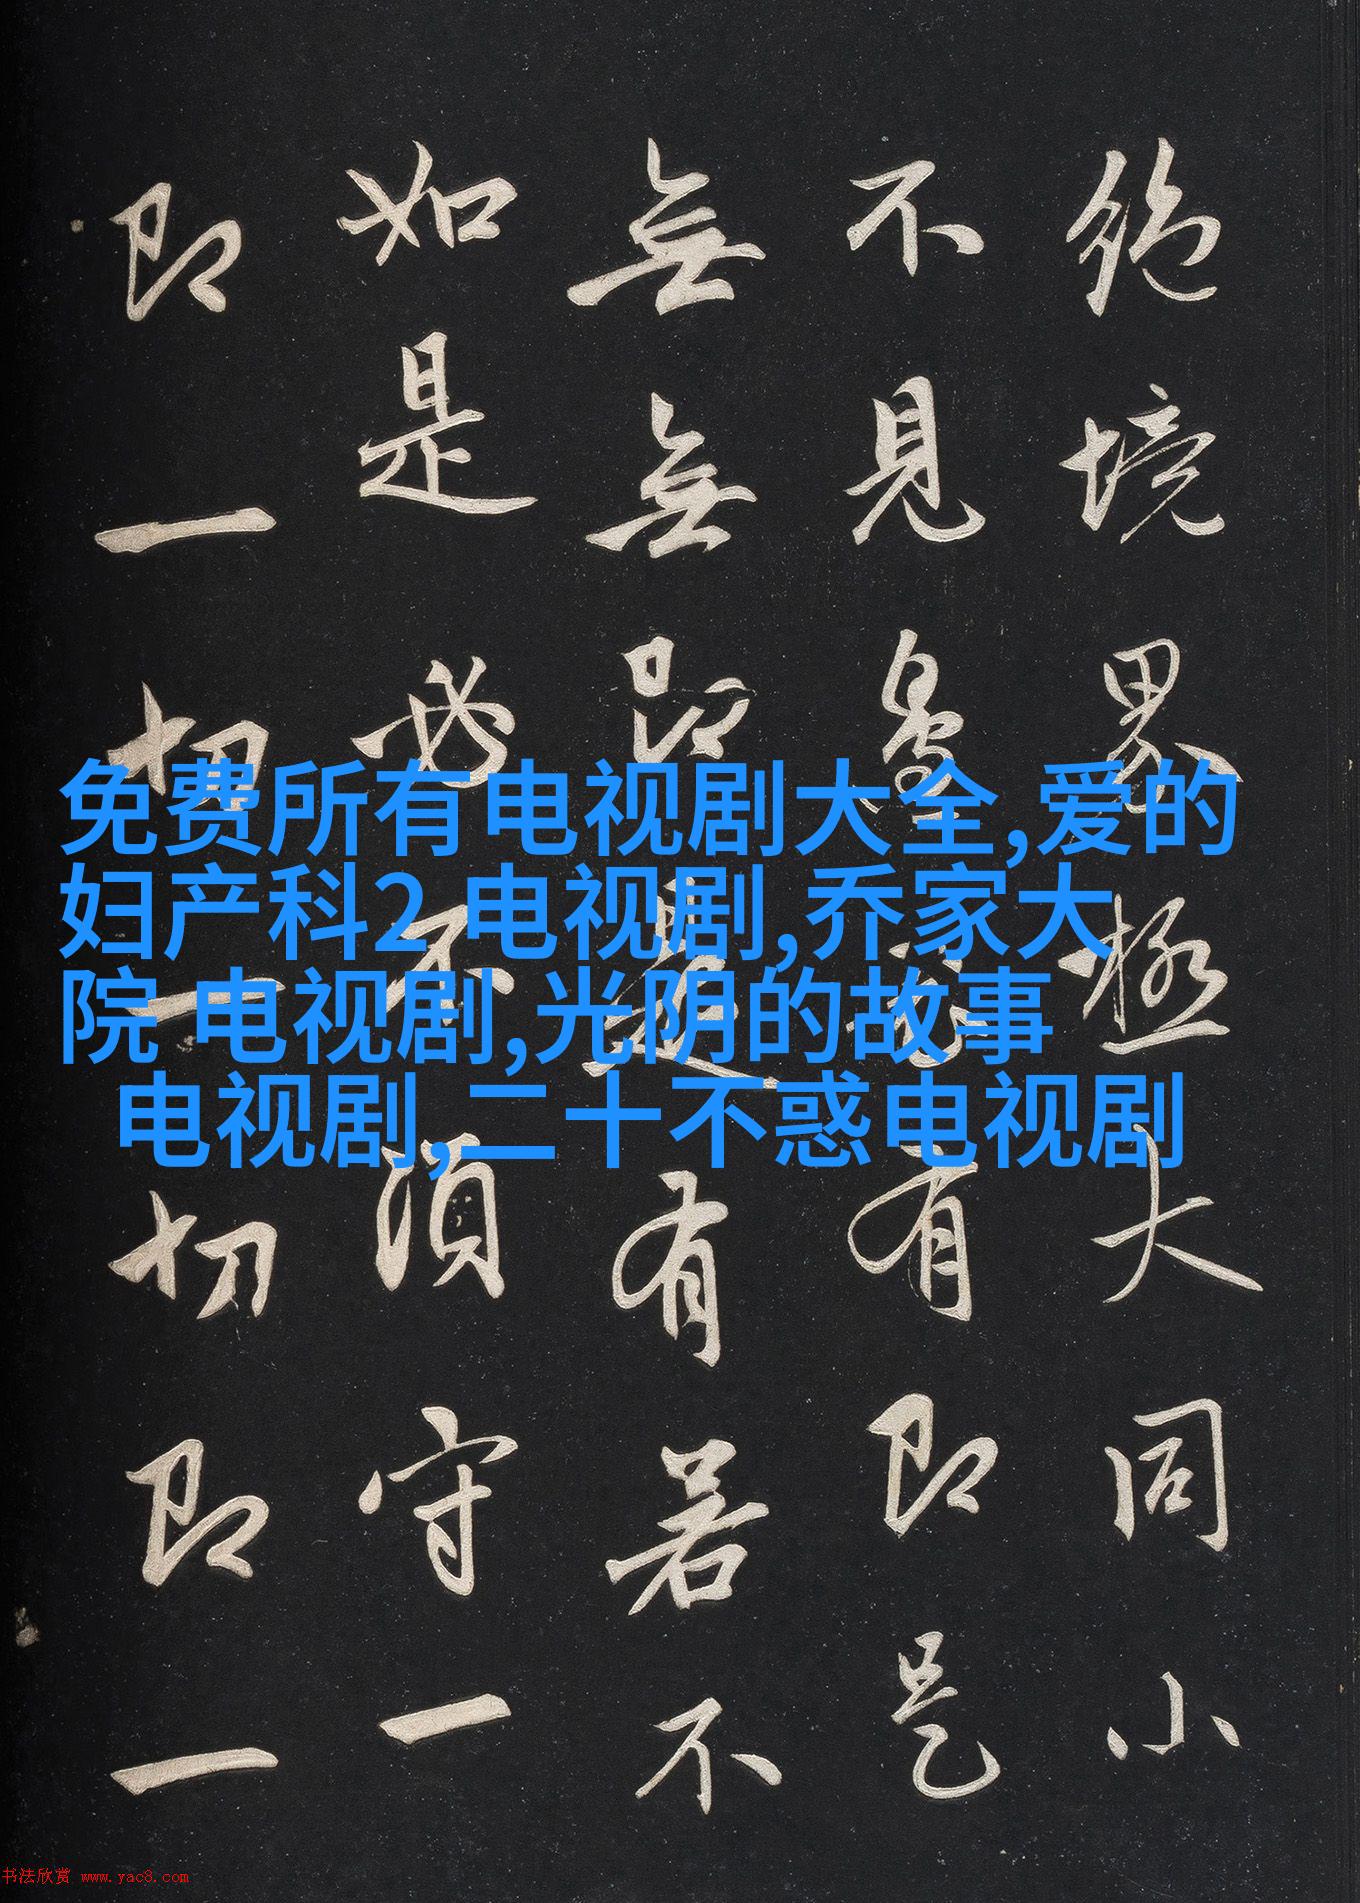 絶境界極大同小
不見邊表有即是
無無即是有若不
如是必不須守一
即一切一切即一
免费所有电视剧大全,爱的
妇产科2 电视剧,乔家大
院 电视剧,光阴的故事
电视剧,二十不惑电视剧
书法欣赏 www.yac8.com